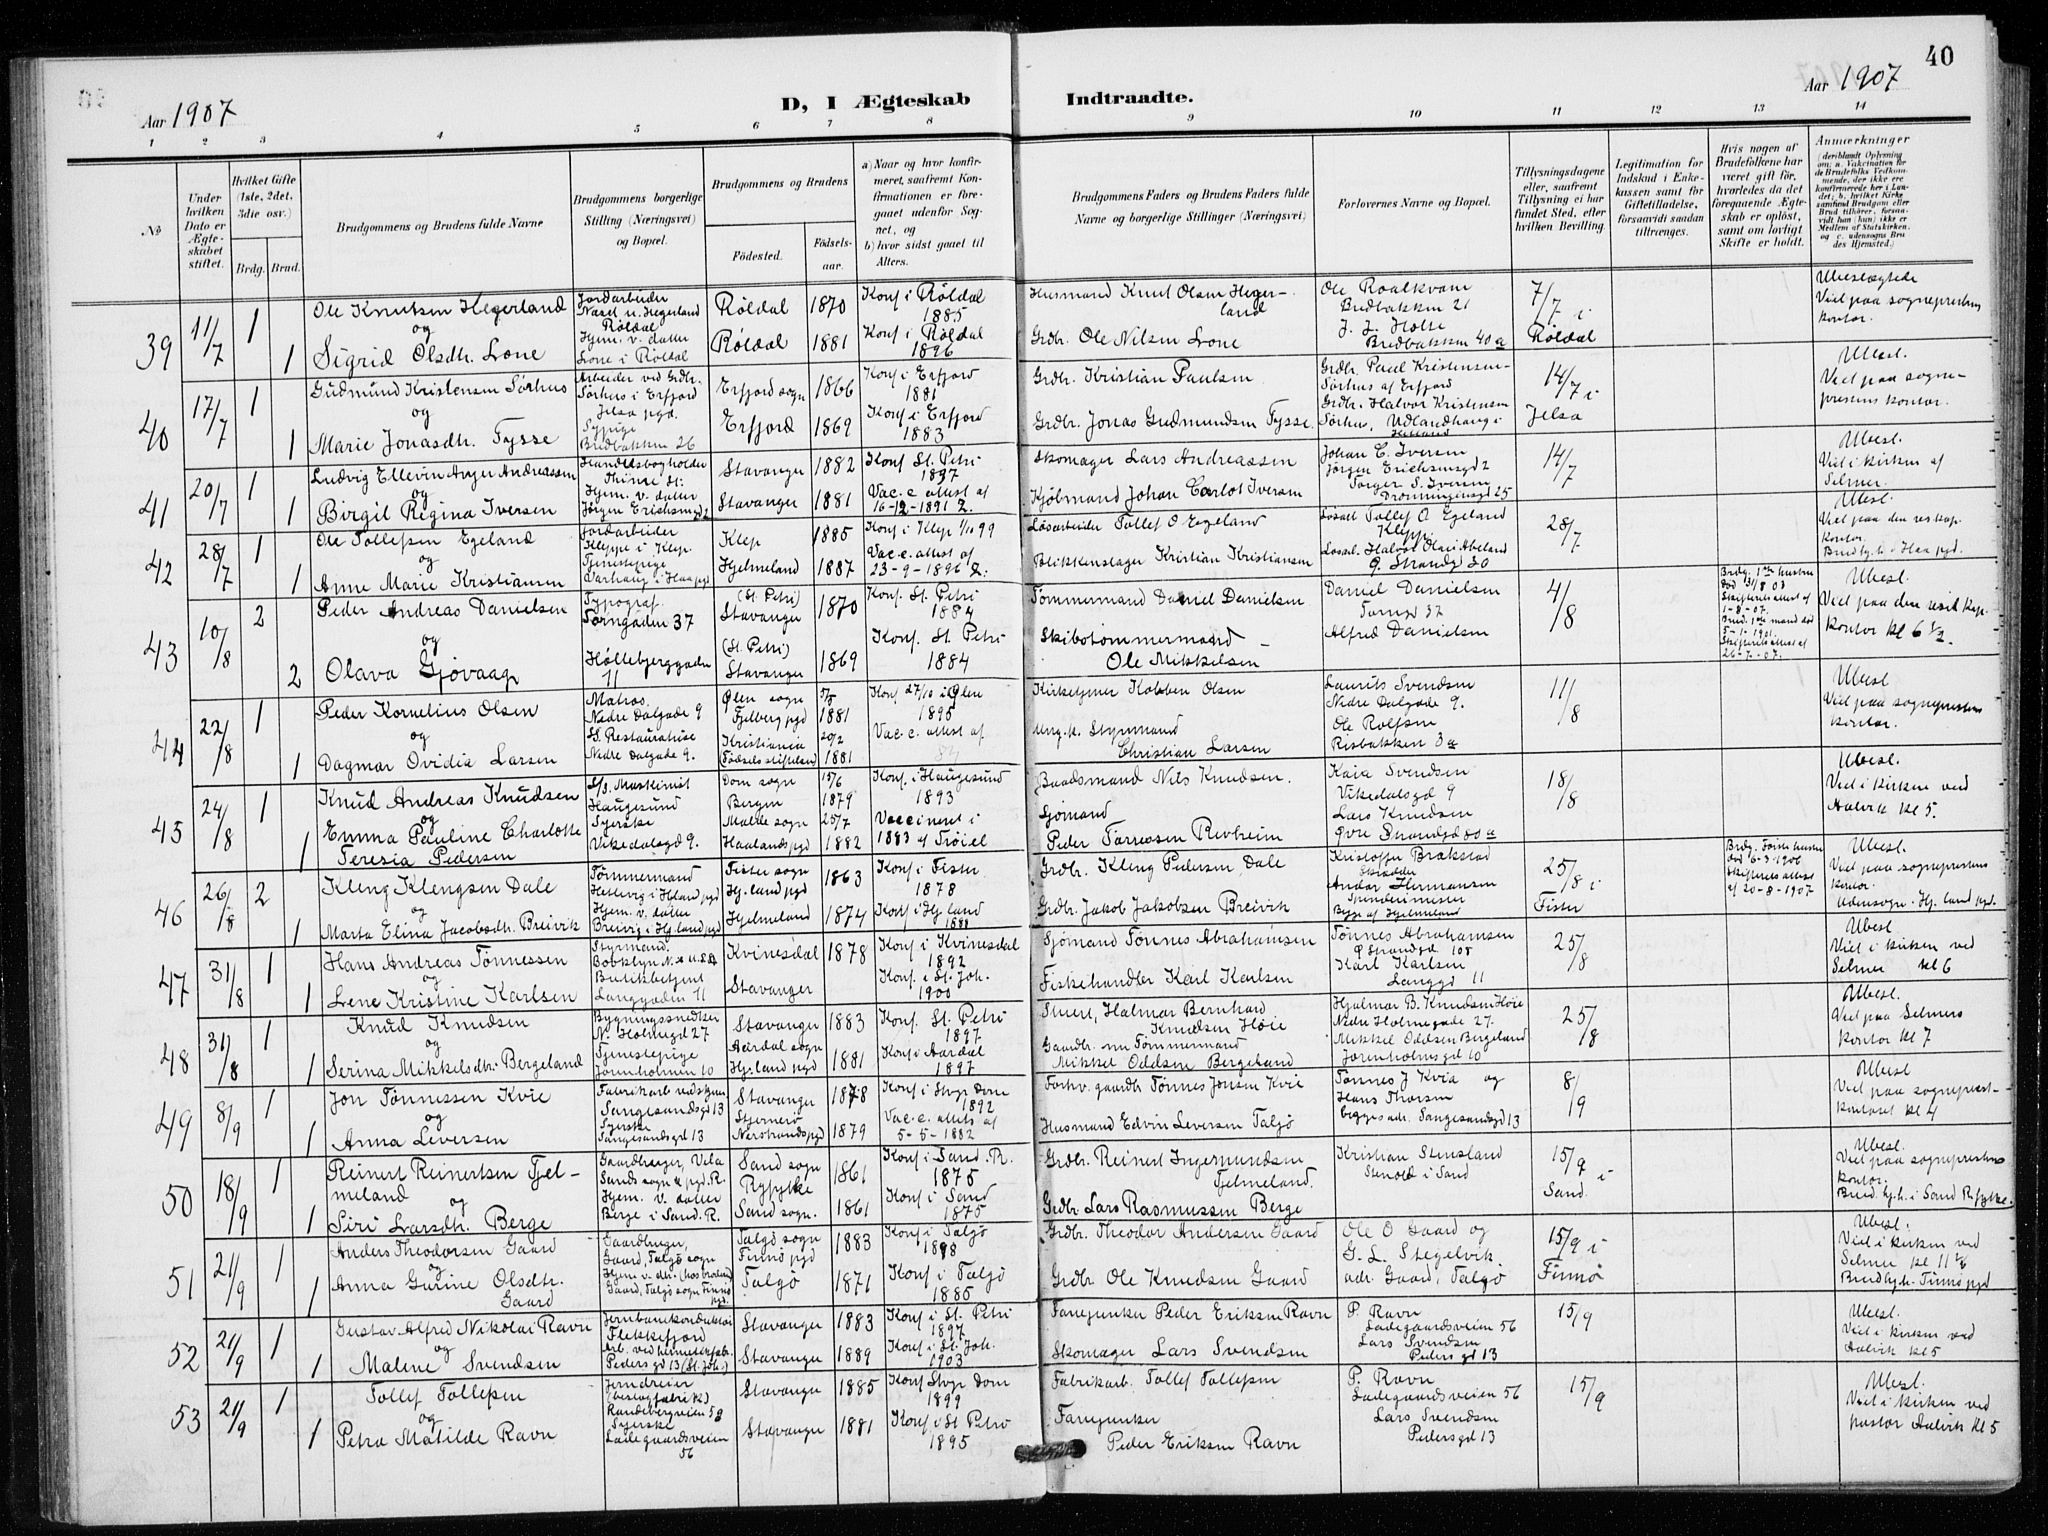 40
Aar 1907
D, I Ægteskab Indtraadte.
Aar 1907
1 2 3 4 5 6 7 8 9 10 11 12 13 14
№
Under hvilken Dato er Ægteskabet stiftet.
Hvilket Gifte (1ste, 2det, 3die osv.)
Brdg. Brud.
Brudgommens og Brudens fulde Navne
Brudgommens borgerlige Stilling (Næringsvei) og Bopæl.
Brudgommens og Brudens
Fødested. Fødselsaar.
a) Naar og hvor konfirmeret, saafremt Konfirmationen er foregaaet udenfor Sognet, og
b) hvor sidst gaaet til Alters.
Brudgommens Faders og Brudens Faders fulde Navne og borgerlige Stillinger (Næringsvei)
Forlovernes Navne og Bopæl.
Tillysningsdagene eller, saafremt Tillysning ei har fundet Sted, efter hvilken Bevilling.
Legitimation for Indskud i Enkekassen samt for Giftetilladelse, forsaavidt saadan tiltrænges.
Hvis nogen af Brudefolkene har været gift før, hvorledes da det foregaaende Ægteskab er opløst, samt om lovligt Skifte er holdt.
Anmærkninger
39 11/7 1 Ole Knutsen Hegerland Røldal 1870 Konf i Røldal 1885 Husmand Knut Olsen Hegerland Ole Roalkvam Bredbakken 21 7/7 i Røldal
Viet paa sogneprestens kontor.
og
1 Sigrid Olsdtr. Lone Hjem. v. datter Lone i Røldal Røldal 1881 Konf. i Røldal 1896 Grdbr. Ole Nilsen Lone J. J. Holte Bredbakken 40 a
40 17/7 1 Gudmund Kristensen Sørhus Arbeider ved Grdbr. Sørhus i Erfjord Jelsa pgd. Erfjord sogn 1866 Konf i Erfjord 1881 Grdbr. Kristian Paulsen Grdbr. Paul Kristensen Sørhus af Erfjord 14/7 i Jelsa
Ubesl. Viet paa sogneprestens kontor.
og
1 Marie Jonasdtr. Tysse Sypige Bredbakken 26 Erfjord 1869 Konf. i Erfjord 1883 Grdbr. Jonas Gudmundsen Tysse Grdbr. Halvor Kristensen Sørhus,
41 20/7 1 Ludvig Ellevin Andreassen Stavanger 1882 Konf. St. Petri 1897 Skomager Lars Andreassen Johan C. Iversen Jørgen Erichsensgd 2 14/7
Ubesl. Viet i kirken af Selmer.
og
1 Birgit Regina Iversen Hjem. v. datter Jørgen Erichsensgd 2 Stavanger 1881 Vac. e. attest af 16-12-1891 Kjøbmand Johan Carlot Iversen Dronningensgd 25
42 28/7 1 Ole Tollefsen Egeland Jordarbeider Kleppe i Klep. Klep 1885 Konf i Klep 1/10 99 Løsarbeider Tollef O Egeland Løsarb Tollef O Egeland Klepp. 28/7
Ubesl. Viet paa den res kap. kontor.
og
1 Anne Marie Kristiansen Tjenestepige Hjelmeland 1887 Vac. e. attest af 23-9-1896 Blikkenslager Kristian Kristiansen Ø. Strandgd 30
43 10/8 2 Peder Andreas Danielsen Typograf. Torngaden 37 (St. Petri) Stavanger 1870 Konf. St. Petri 1884 Tømmermand Daniel Danielsen Daniel Danielsen Torngd 37 4/8
Brdg. 1ste hustru død 13/8 03 Skifterets attest af 1-8-07. Brud. 1ste mand død 5-1-1901. Skifterets attest af 26-7-07.
Ubesl. Viet paa den resid kap. kontor kl 6 1/2.
og
2 Olava Gjøvaag 11 (St. Petri) Stavanger 1869 Konf. St. Petri 1884 Skibstømmermand Ole Mikkelsen Alfred Danielsen
44 22/8 1 Peder Kornelius Olsen Matros. Nedre Dalgade 9 Ølen sogn Fjelberg pgd 1881 Konf. 27/10 i Ølen 1895 Kirketjener Kolben Olsen Laurits Svendsen Nedre Dalgade 9. 11/8
Ubesl Viet paa sogneprestens kontor.
og
1 Dagmar Ovidia Larsen Nedre Dalgade 9. Kristiania (Fødselsstiftelsen) 20/2 1881 Vac. e. attest af Styrmand Christian Larsen Ole Rolfsen Risbakken 3 a
45 24/8 1 Knud Andreas Knudsen Haugesund Dom sogn Bergen 15/6 1879 Konf. i Haugesund 1893 Baadsmand Nils Knudsen. Kaia Svendsen Vikedalsgd 9 18/8
Ubesl. Viet i kirken ved Aalvik kl 5.
og
1 Emma Pauline Charlotte Teresia Pedersen Syerske Vikedalsgd 9. Malde sogn Haalands pgd 25/7 1882 Vaccineret i 1883 af Trøiel Sjømand Peder Tørressen Revheim Lars Knudsen Øvre Strandgd 80 a
46 26/8 2 Kleng Klengsen Dale Tømmermand Fister sogn Hj. land pgd 1863 Konf. i Fister 1878 Grdbr. Kleng Pedersen Dale Kristoffer Brakstad Skrædder 25/8 i Fister
Brdg. første hustru død 16-3-1906 Skifterets attest af 20-8-1907
Ubesl. Viet paa sogneprestens kontor. Udensogn. Hj. land pgd.
og
1 Marta Elina Jacobsdtr. Breivik Hjem. v. datter Breivig i Hj. land pgd Hjelmeland 1874 Konf. i Hj. land 1888 Grdbr. Jakob Jakobsen Breivik Andor Hermansen Spinderimester Begge af Hjelmeland
47 31/8 1 Hans Andreas Tønnessen Styrmand. Kvinesdal 1878 Konf i Kvinesdal 1892 Sjømand Tønnes Abrahamsen Tønnes Abrahamsen Ø Strandgd 105 25/8
Ubesl Viet i kirken ved Selmer kl 6
og
1 Lene Kristine Karlsen Butikbetjent Langgaden 11 Stavanger Konf. i St. Joh. 1900 Fiskehandler Karl Karlsen Karl Karlsen Langgd 11
48 31/8 1 Knud Knudsen Bygningssnedker N. Holmegd 27 Stavanger 1883 Konf. St. Petri 1897 Stuert, Halmar Bernhard Knudsen Høie Hjalmar B. Knudsen Høie Nedre Holmegade 27. 25/8
Ubesl. Viet paa Selmers kontor kl 7
og
1 Serina Mikkelsdtr. Bergeland Tjenestepige Jorenholmen 10 Aardal sogn Hj. land pgd 1881 Konf i Aardal 1897 Gaardbr. nu Tømmermand Mikkel Oddsen Bergeland Mikkel Oddsen Bergeland Jorenholmsgd 10
49 8/9 1 Jon Tønnessen Kvie Sangesandsgd 13 Stavanger 1878 Konf. i Stvgr Dom 1892 Forhv. gaardbr Tønnes Jonsen Kvie Tønnes J Kvia og 8/9
Ubesl Viet paa sogneprestkontoret kl 4
og
1 Anna Leversen Syerske Sangesandsgd 13 Stjernerø Nerstrands pgd 1879 Vac. e. attets af 5-5-1882 Husmand Edvin Leversen Talgø Hans Thorsen begges adr. Sangesandsgd 13
50 18/9 1 Reinert Reinertsen Tjelmeland Gaardbruger, Vela Sands sogn & pgd. R. Sand sogn Ryfylke 1861 Konf i Sand. R. 1875 Grdbr. Reinert Ingemundsen Tjelmeland. Kristian Stensland Stenold i Sand 15/9 i Sand.
Ubesl. Viet paa sogneprestens kontor. Brud. hj. h. i Sand Ryfylke.
og
1 Siri Larsdtr. Berge Hjem. v. datter Berge i Sand. R. Sand sogn. 1861 Konf i Sand 1875 Grdbr. Lars Rasmussen Berge
51 21/9 1 Anders Theodorsen Gaard Gaardbruger, Gaard, Talgø sogn Talgø sogn Finnø pgd 1883 Konf i Talgø 1898 Grdbr. Theodor Andersen Gaard Ole O Gaard og 15/9 i Finnø
Ubesl. Viet i kirken ved Selmer kl 11 1/2 Brudhj. h. Finnø pgd
og
1 Anna Gurine Olsdtr. Gaard Talgø 1871 Konf i Talgø 1885 Grdbr Ole Knudsen Gaard G. L. Stegelvik adr. Gaard, Talgø
52 21/9 1 Gustav Alfred Nikolai Ravn Jernbanekonduktør Flekkefjord Stavanger 1883 Konf i St. Petri 1897 Fanejunker Peder Eriksen Ravn P. Ravn Ladegaardsveien 56 15/9
Ubesl. Viet i kirken ved Aalvik kl 5
og
1 Malene Svendsen Pedersgd 13 (St. Joh.) Stavanger 1889 Konf. i St. Joh. 1903 Skomager Lars Svendsen Lars Svendsen Pedersgd 13
53 21/9 1 Tollef Tollefsen Jerndreier Randebergveien 58 Stavanger 1885 Konf Stvgr Dom 1899 Fabrikarb. Tollef Tollefsen P. Ravn Ladegaardsveien 56 15/9
Ubesl. Viet i kirken ved pastor Aalvik kl 5
og
1 Petra Matilde Ravn Syerske Ladegaardsveien 56 Stavanger 1881 Konf i St Petri 1895 Fanejunker Peder Eriksen Ravn Lars Svendsen Pedersgd 13